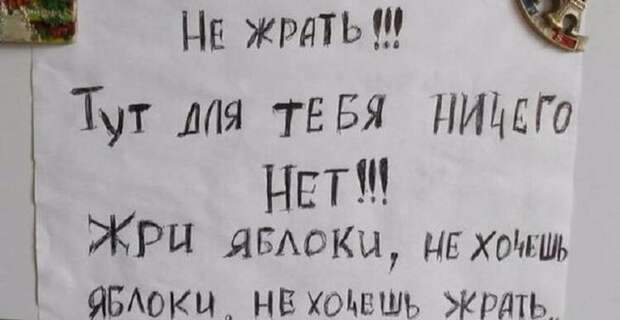 Не жрать!!!
Тут для тебя ничего
нет!!!
Жри яблоки, не хочешь
яблоки, не хочешь жрать..